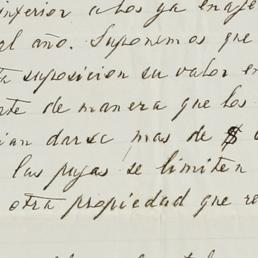 inferior a los ya enaje
al año. Suponemos que
ta suposicion su valor en
rte de manera que los
ian darse mas de $
las pujas se limiten
otra propiedad que re